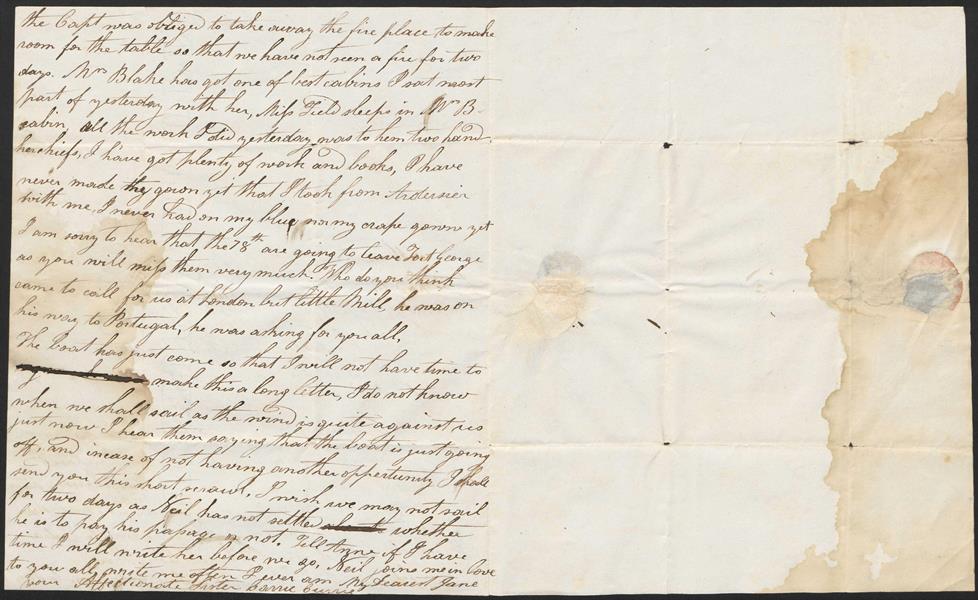 the Capt was obliged to take away the fire place to make
room for the table so that we have not seen a fire for two
days. Mrs Blake has got one of best cabins I sat most
part of yesterday with her, Miss Field sleeps in Mrs B-
cabin, all the work I did yesterday was to hem two hand
kerchiefs, I have got plenty of work and books, I have
never made the gown yet that I took from Ardersier
with me, I never had on my blue nor my crape gown yet
I am sorry to hear that the 78th are going to leave Fort George
as you will miss them very much. Who do you think
came to call for us at London but little Mill, he was on
his way to Portugal, he was asking for you all,
The boat has just come so that I will not have time to
make this a long letter, I do not know
when we shall sail as the wind is quite against us
just now I hear them saying that the boat is just going
off, and incase of not having another opportunity I shall
send you this short scrawl, I wish we may not sail
for two days as Neil has not settled whether
he is to pay his passage or not. Tell Anne if I have
time I will write her before we go, Neil joins me in love
to you all, write me often I ever am My Dearest Jane
your Affectionate Sister Carrie Currie